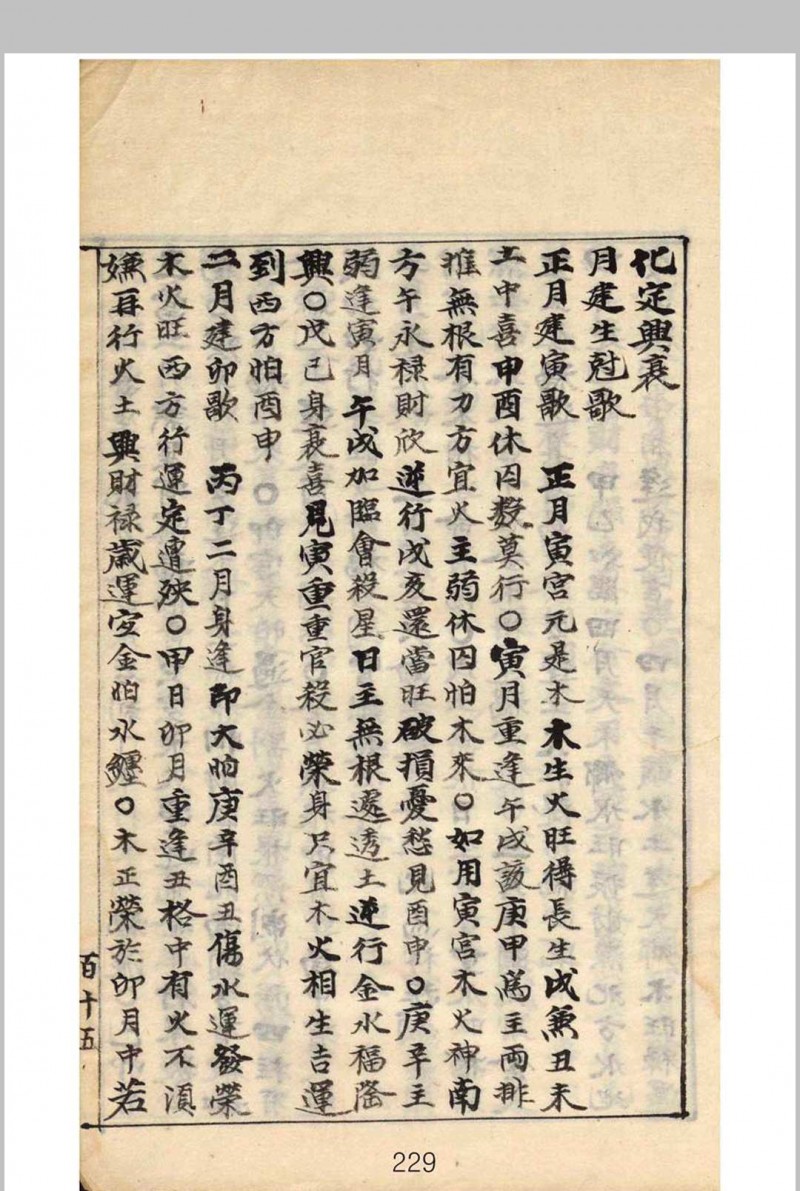 化定興衰
月建生尅歌
正月建寅歌 正月寅宮元是木木生火旺得長生戌兼丑未
土中喜申酉休囚數莫行○寅月重逢午戌該庚甲為主両排
推無根有力方宜火主弱休囚怕木來○如用寅宮木火神南
方午永禄財欣逆行戌亥還當旺破損憂愁見酉申○庚辛主
弱逢寅月午戌加臨會殺星日主無根處透土逆行金水福隆
興○戊己身衰喜見寅重重官殺必榮身只宜木火相生吉運
到西方怕酉申
二月建卯歌 丙丁二月身逢印大怕庚辛酉丑傷水運發榮
木火旺西方行運定遭殃○甲日卯月重逢丑格中有火不須
嫌再行火土興財禄歲運空金怕水纏○木正榮於卯月中若
百十五
229